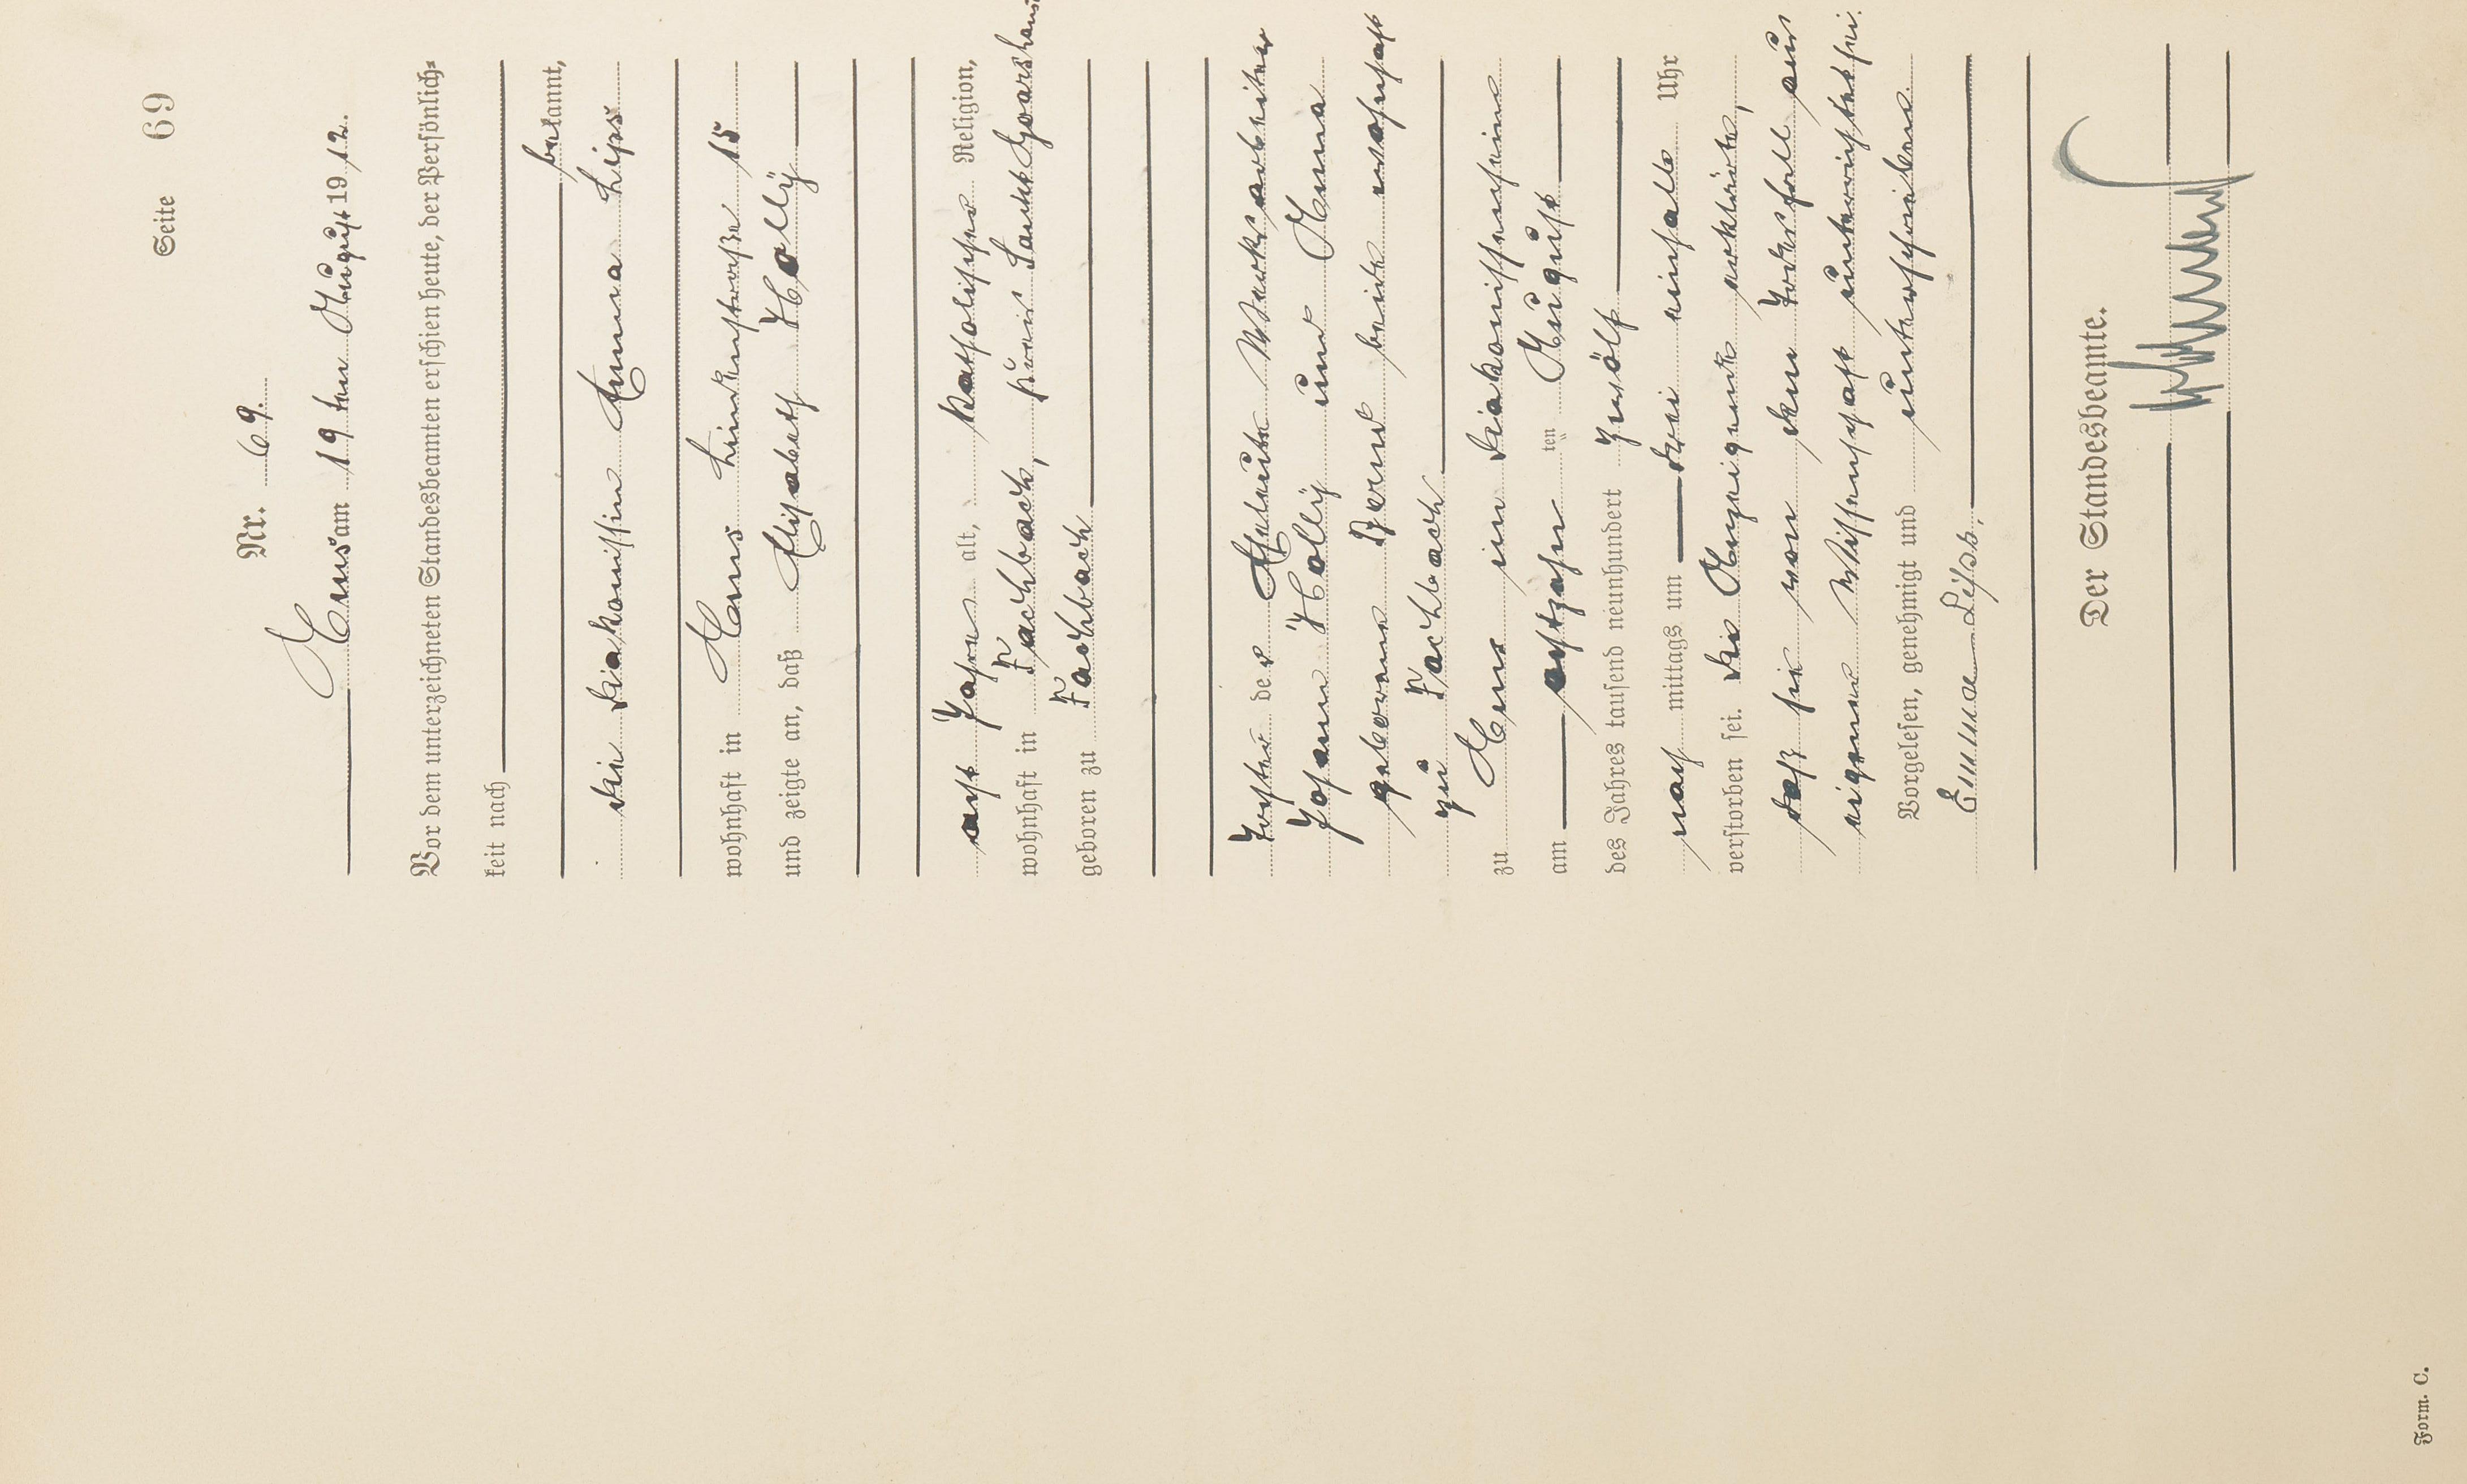 Seite 69
Nr. 69.
Ems am 19ten August 1912.
Vor dem unterzeichneten Standesbeamten erschien heute, der Persönlich-
keit nach
bekannt,
die Diakonissin Emma Lips
wohnhaft in Ems Lindenstraße 15
und zeigte an, daß Elisabeth Holly
acht Jahre alt, katholischer Religion,
wohnhaft in Fachbach, Kreis Sankt Goarshausen
geboren zu Fachbach
Tochter der Eheleute Werksarbeiter
Johann Holly und Anna
geborene beide wohnhaft
zu Fachbach
zu Ems im Diakonissenheim
am achtzehnten August
des Jahres tausend neunhundert zwölf
nach mittags um drei einhalb Uhr
verstorben sei. Die Anzeigende erklärte,
daß sie von dem Todesfall aus
eigener Wissenschaft unterrichtet sei.
Vorgelesen, genehmigt und unterschrieben.
Emma Lips.
Der Standesbeamte.
Form. C.